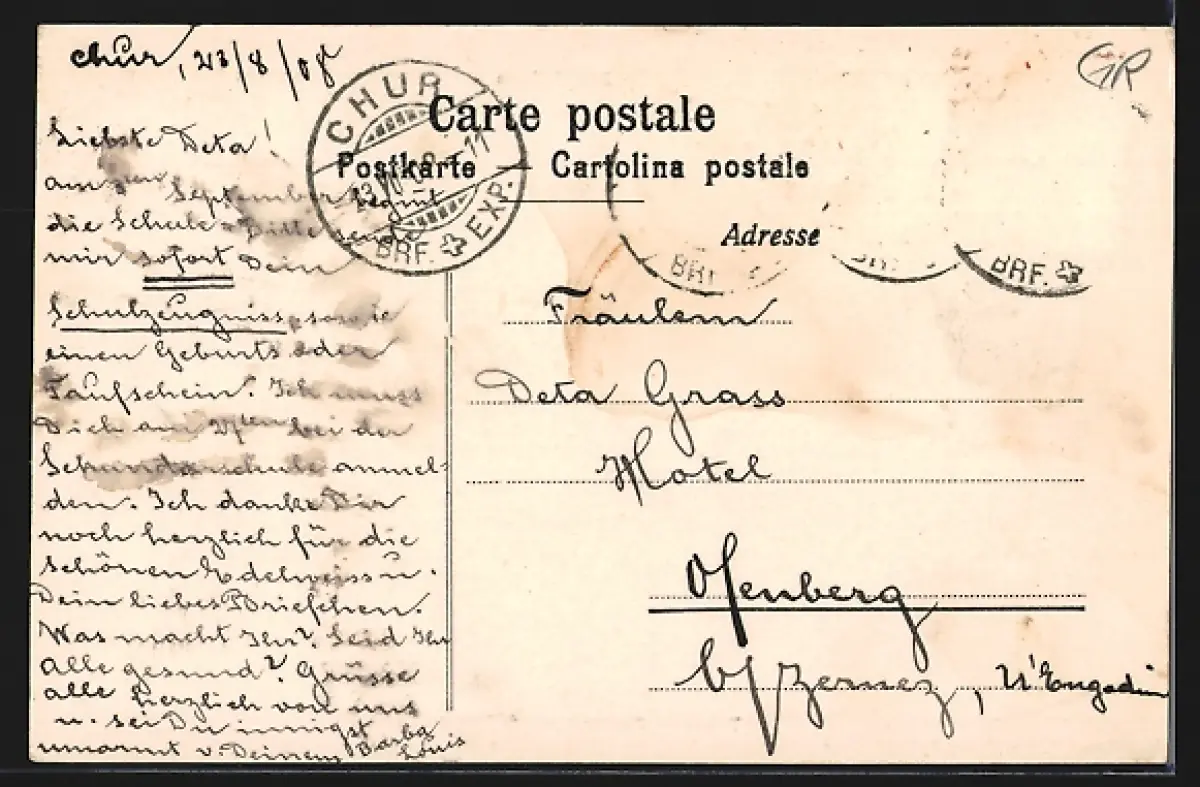 Chur, 23/8/08
Liebste Deta!
am September beginnt
die Schule. Bitte sende
mir sofort Dein
Schulzeugniss, sowie
einen Geburts oder
Taufschein. Ich muss
Dich am bei der
Sekundarschule anmel-
den. Ich danke Dir
noch herzlich für die
schönen Edelweiss u.
Dein liebes Briefchen.
Was macht Ihr? Seid Ihr
alle gesund? Grüsse
alle herzlich von uns
u. sei Du innigst
umarmt v. Deinem Barba
Louis
CHUR
BRF. EXP.
Carte postale
Postkarte – Cartolina postale
Adresse
BRF.
BRF.
GR
Fräulein
Deta Grass
Hotel
Ofenberg
b/Zernez, U'Engadin